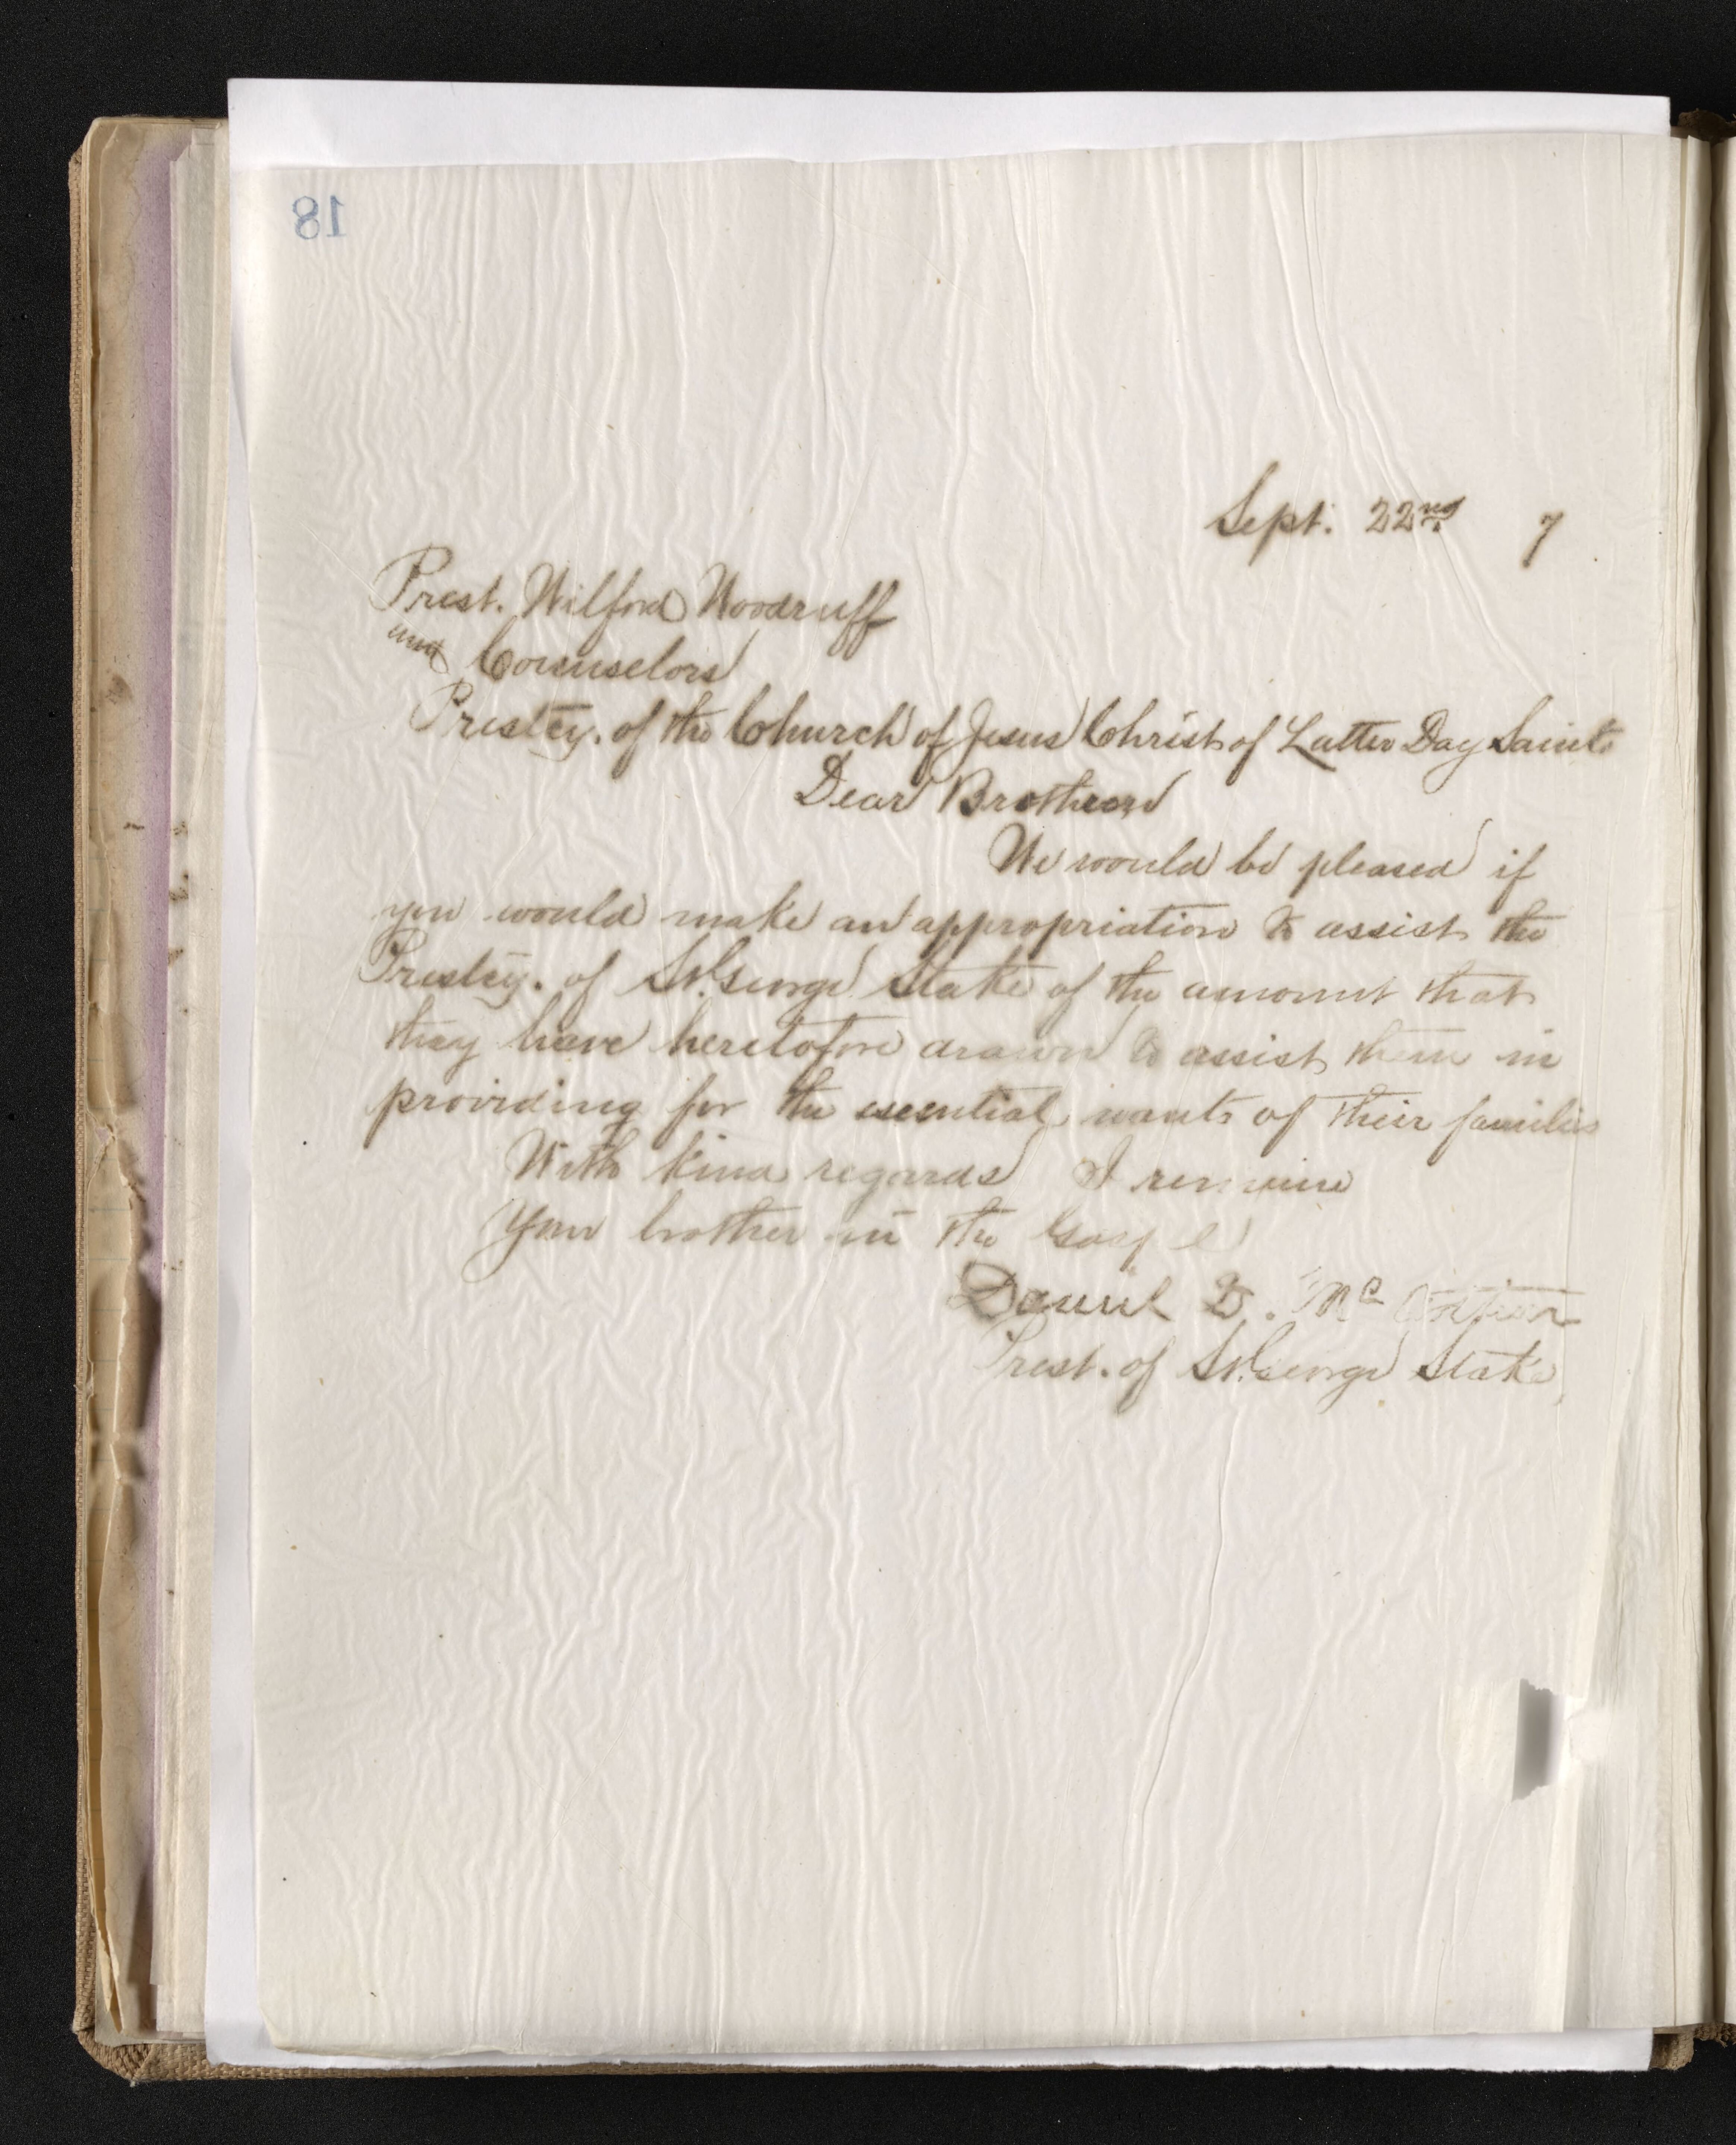 18
Sept. 22nd 7
Prest. Wilford Woodruff
and Counselors
Prestcy. of the Church of Jesus Christ of Latter Day Saints
Dear Brethren
We would be pleased if
you would make an appropriation to assist the
Prestcy. of St. George Stake of the amount that
they have heretofore drawn to assist them in
providing for the essential wants of their families
With kind regards I remain
Your brother in the Gospel
Daniel D. McArthur
Prest. of St. George Stake